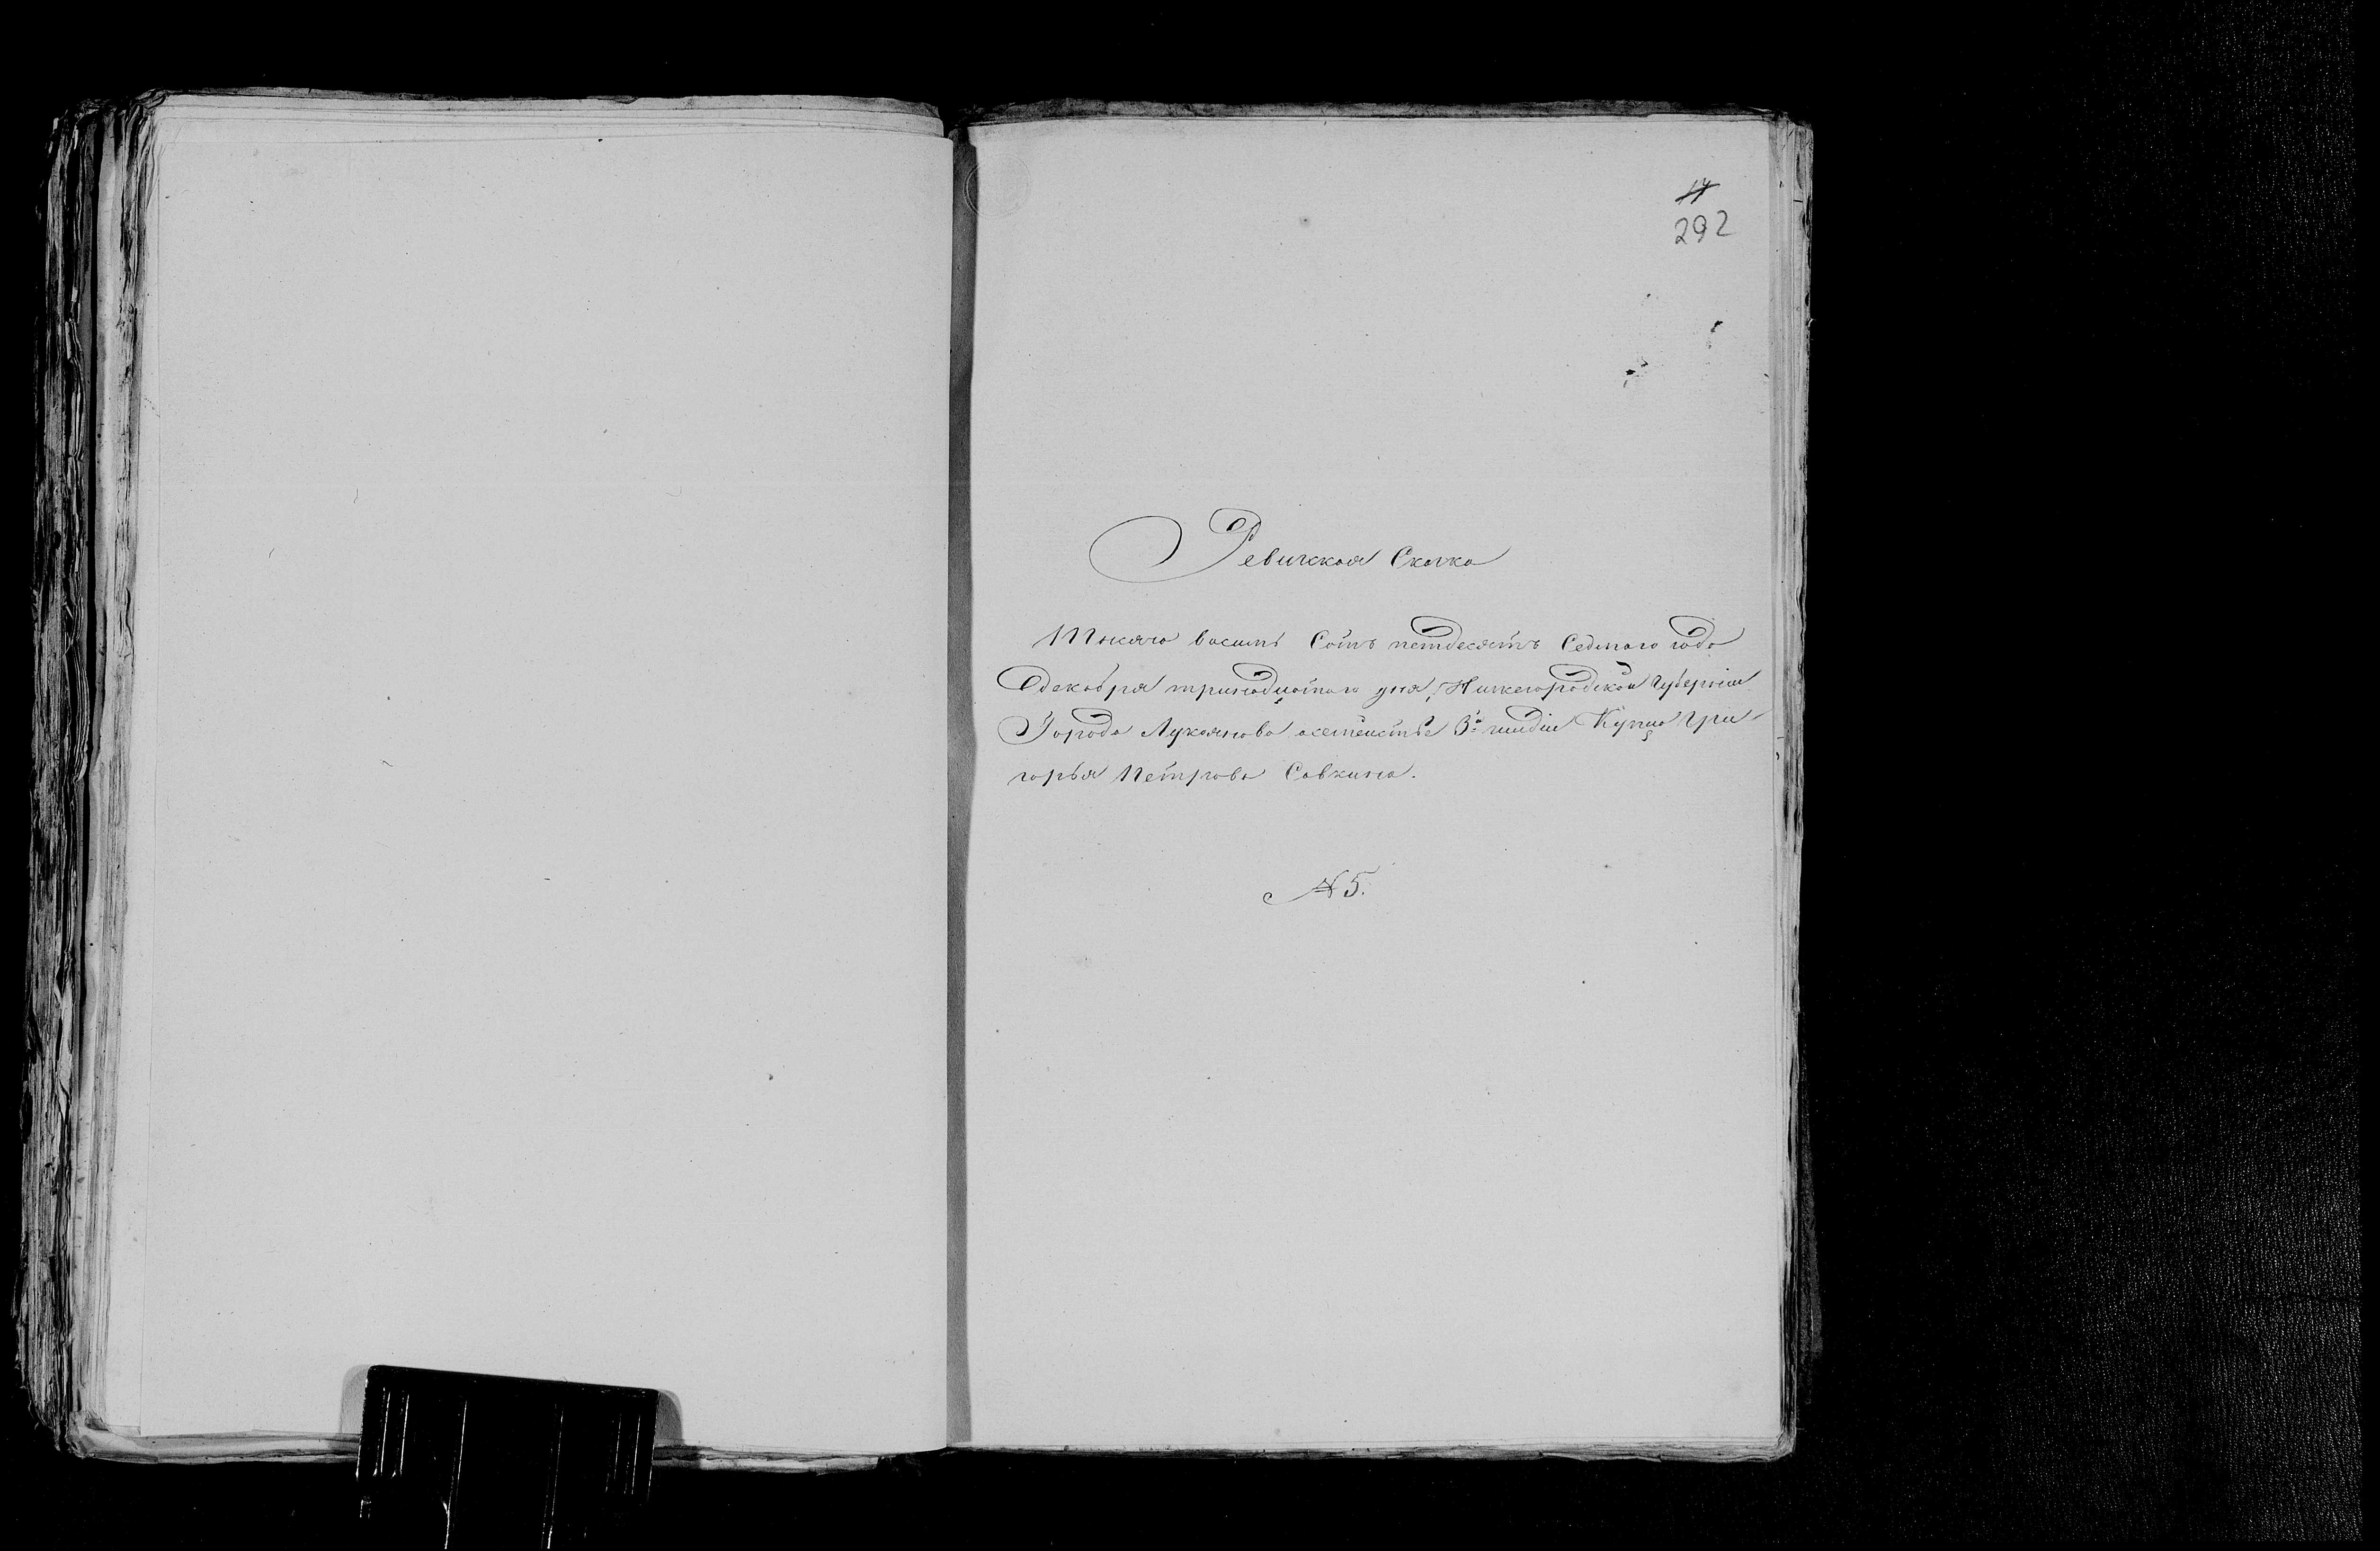 17
292
Ревижская Скаска
Тысяча восемь Сотъ петдесятъ Седмаго года
Декабря тринадцатаго дня, Нижегородской Губерніи
Города Лукоянова осемействе 3й гилдіи Купца Гри-
горья Петрова Савкина.
№ 5.